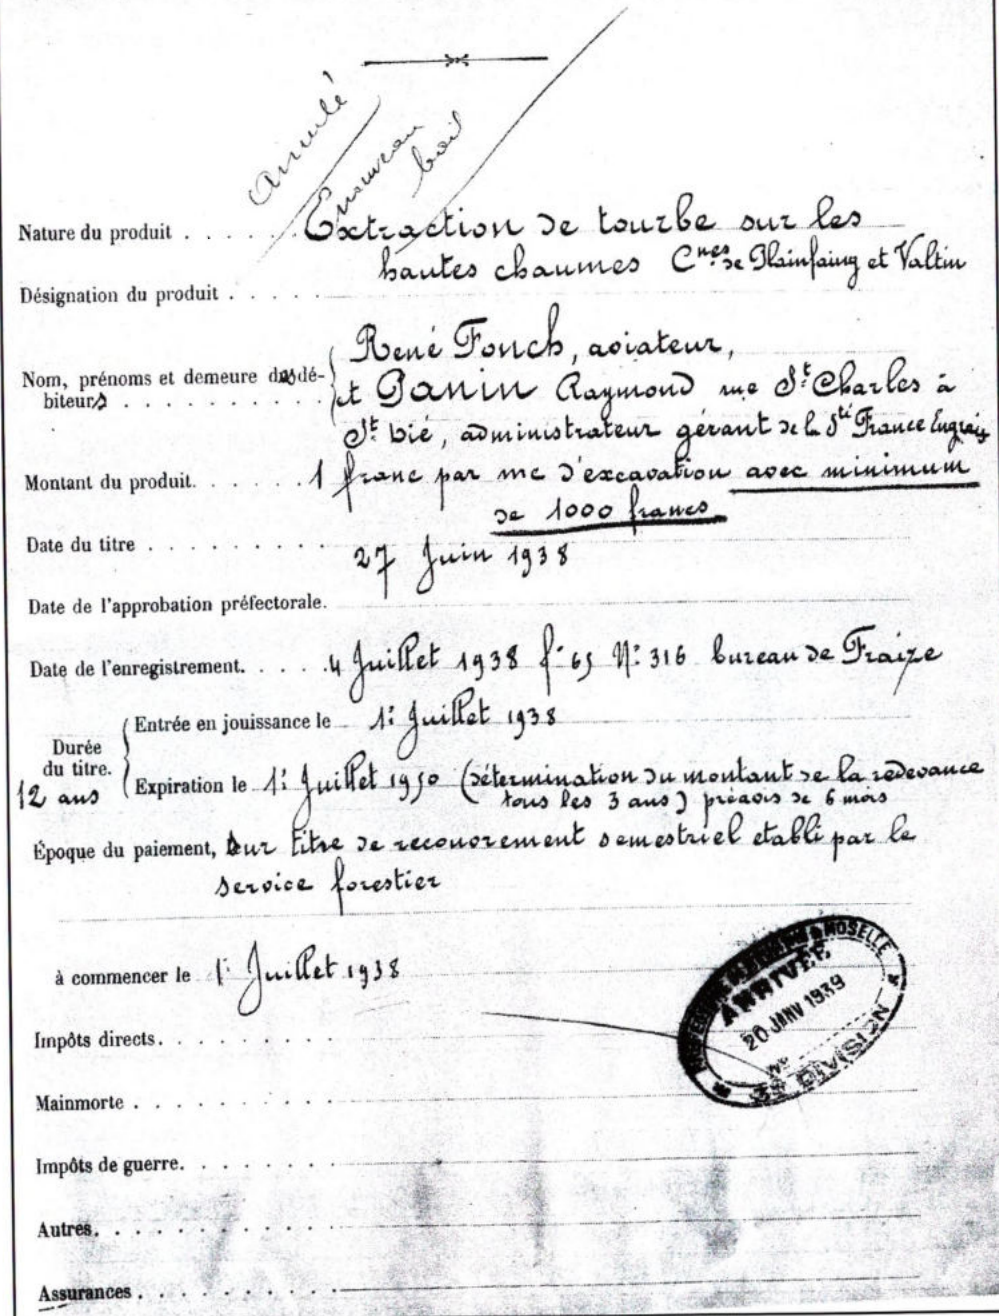 annulé
nouveau
bail
Nature du produit . . . . . Extraction de tourbe sur les
hautes chaumes Cnes de Plainfaing et Valtin
Désignation du produit . . . .
René Fonck, aviateur,
Nom, prénoms et demeure des dé-
biteurs . . . . . . . . . . et Panin Raymond rue St Charles à
St Dié, administrateur gérant de la Sté France Engrais
Montant du produit. . . . . . 1 franc par mc d'excavation avec minimum
de 1000 francs
Date du titre . . . . . . . . . 27 Juin 1938
Date de l'approbation préfectorale.
Date de l'enregistrement. . . . . 4 Juillet 1938 f° 65 N° 316 bureau de Fraize
Durée
du titre.
12 ans
Entrée en jouissance le 1er Juillet 1938
Expiration le 1er Juillet 1950 (détermination du montant de la redevance
tous les 3 ans) préavis de 6 mois
Époque du paiement, sur titre de recouvrement semestriel etabli par le
service forestier
à commencer le 1er Juillet 1938
MOSELLE
ARRIVÉE
20 JANV 1939
DIVISION
Impôts directs. . . . . . . . .
Mainmorte . . . . . . . . . .
Impôts de guerre. . . . . . . .
Autres. . . . . . . . . . . .
Assurances . . . . . . . . . .